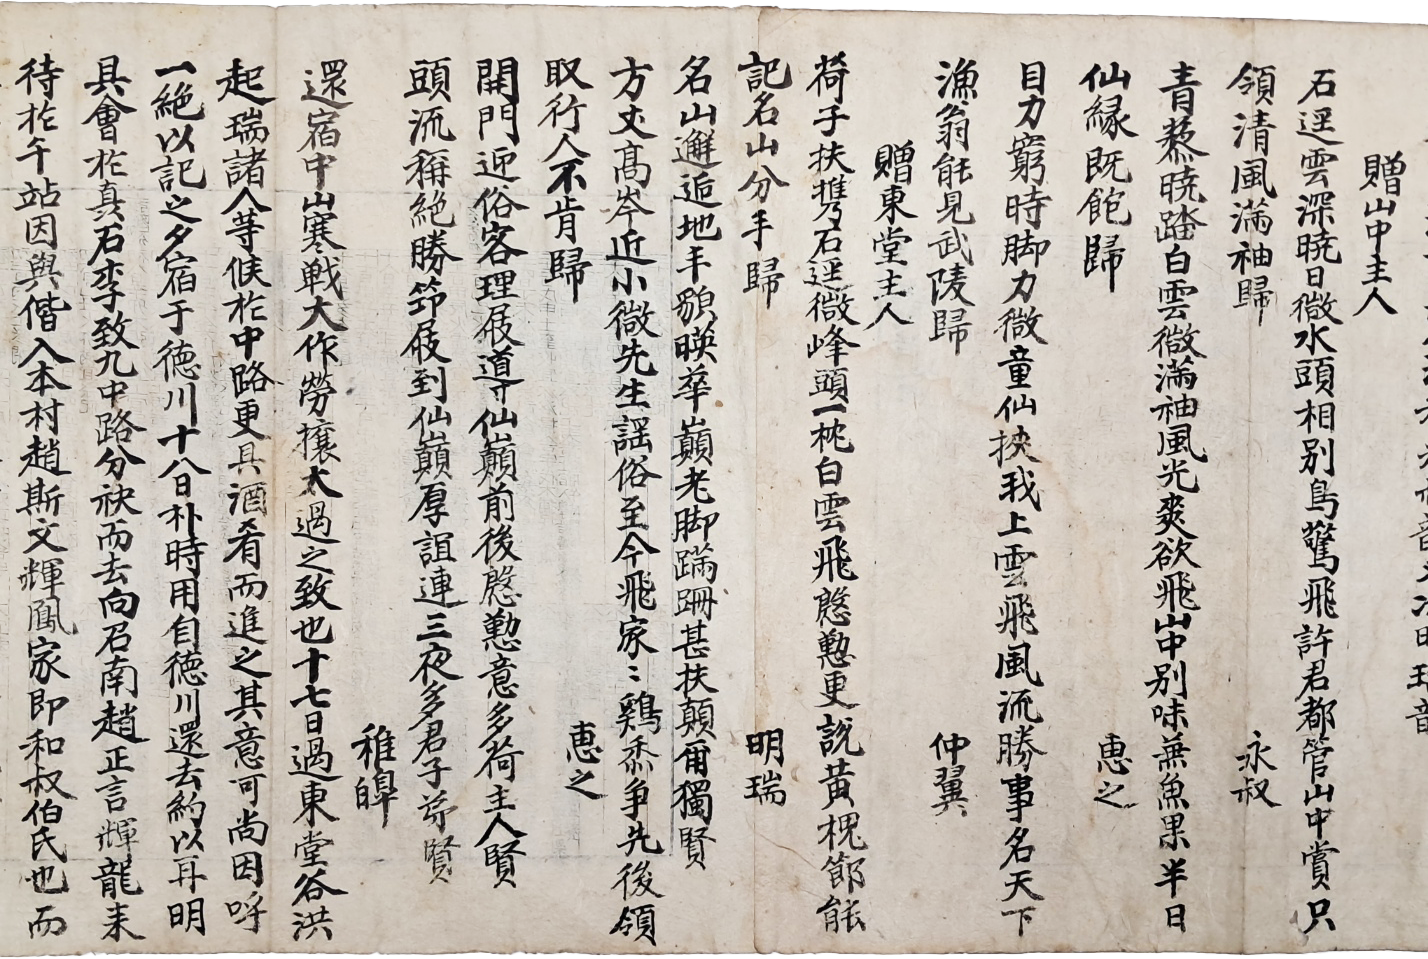 贈山中主人
石逕雲深曉日微水頭相別鳥驚飛許君都管山中賞只
領清風滿袖歸
永叔
青藜曉踏白雲微滿袖風光爽欲飛山中別味無魚果半日
仙緣既飽歸
惠之
目力窮時脚力微童仙挾我上雲飛風流勝事名天下
漁翁能見武陵歸
仲翼
贈東堂主人
荷子扶携石逕微峰頭一枕白雲飛慇懃更說黃槐節能
記名山分手歸
明瑞
名山邂逅地主顥暎華巔老脚蹣跚甚扶顛爾獨賢
方丈高岑近小微先生謠俗至今飛家〻鷄黍爭先後領
取行人不肯歸
惠之
開門迎俗客理屐導仙巔前後慇懃意多荷主人賢
頭流稱絶勝笻屐到仙巔厚誼連三夜多君子弟賢
稚皥
還宿中山寒戰大作勞攘太過之致也十七日過東堂谷洪
起瑞諸人等候於中路更具酒肴而進之其意可尚因呼
一絶以記之夕宿于德川十八日朴時用自德川還去約以再明
具會於真石李致九中路分袂而去向召南趙正言輝龍來
待於午站因與偕入本村趙斯文輝鳳家即和叔伯氏也而